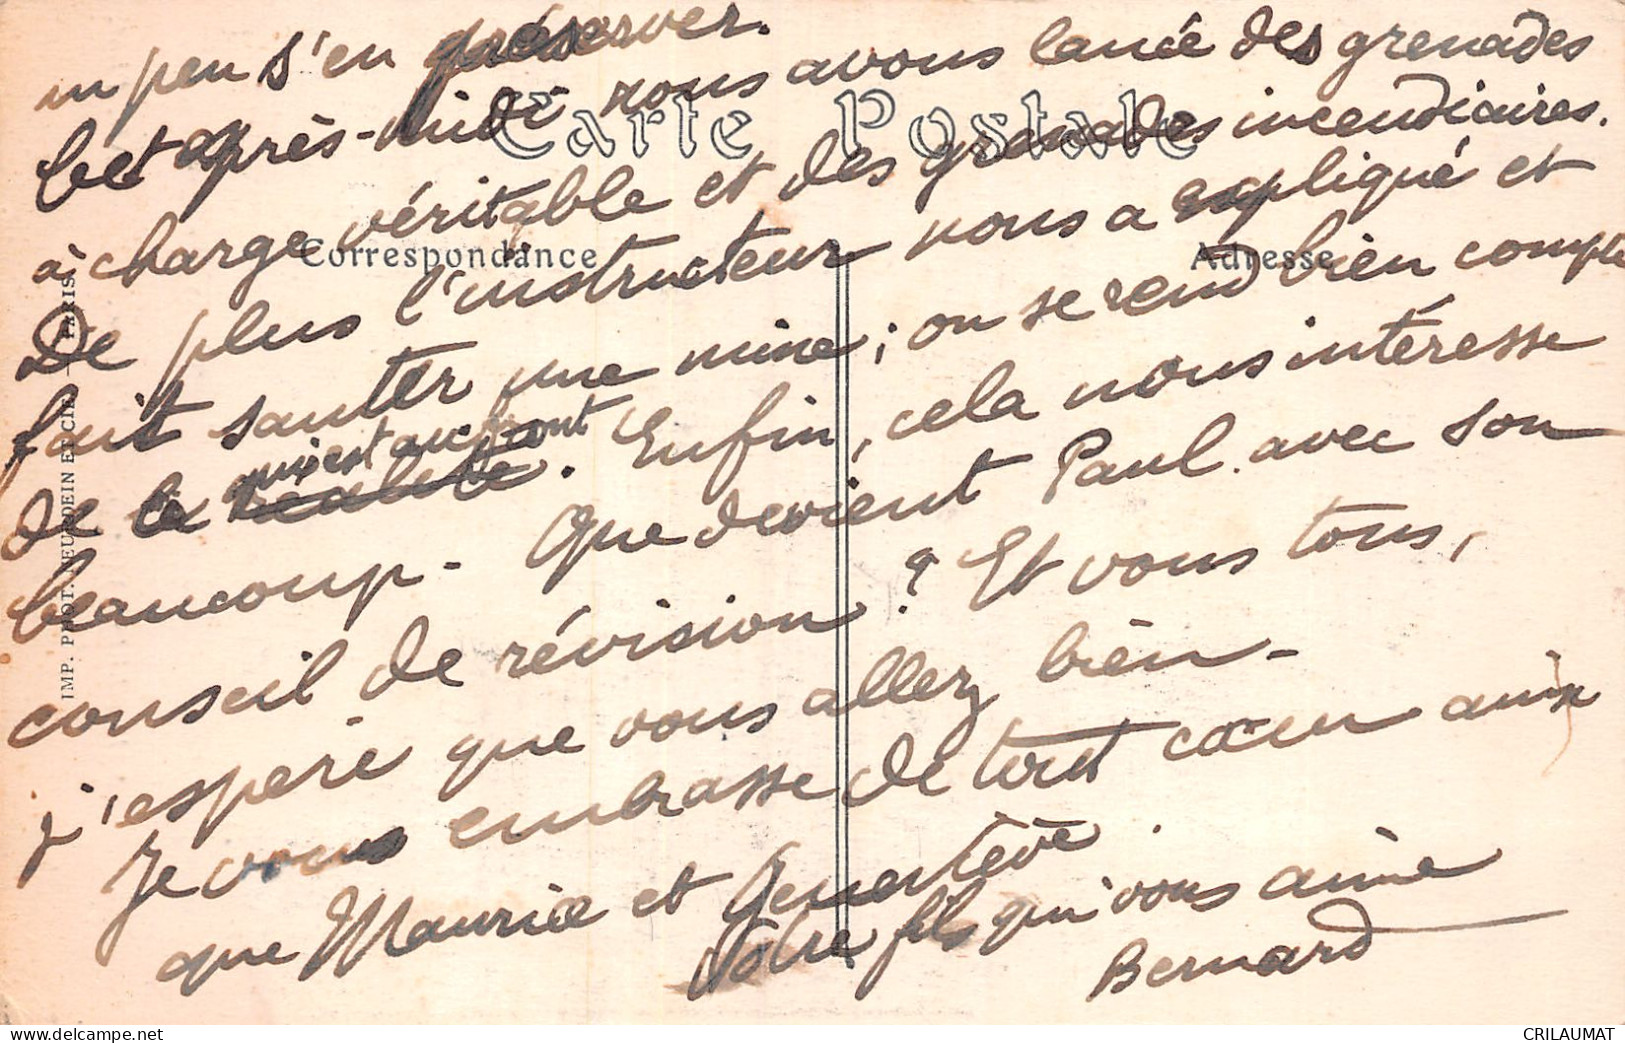 un peu s'en préserver.
Cet après-midi nous avons lancé des grenades
à charge véritable et des grenades incendiaires.
De plus l'instructeur nous a expliqué et
fait sauter une mine ; on se rend bien compte
de ce qui est au front. Enfin, cela nous intéresse
beaucoup - Que devient Paul avec son
conseil de révision ? Et vous tous,
j'espère que vous allez bien -
Je vous embrasse de tout cœur ainsi
que Maurice et Geneviève.
Votre fils qui vous aime
Bernard
Carte Postale
Correspondance
Adresse
IMP. PHOT. NEURDEIN ET CIE. - PARIS
CRILAUMAT